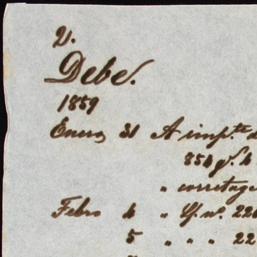 2.
Debe.
1859
Enero 31 A imp.te
854 p.s 4
" corretage
Febro 4 " L/ n.º 226
5 " " " 22